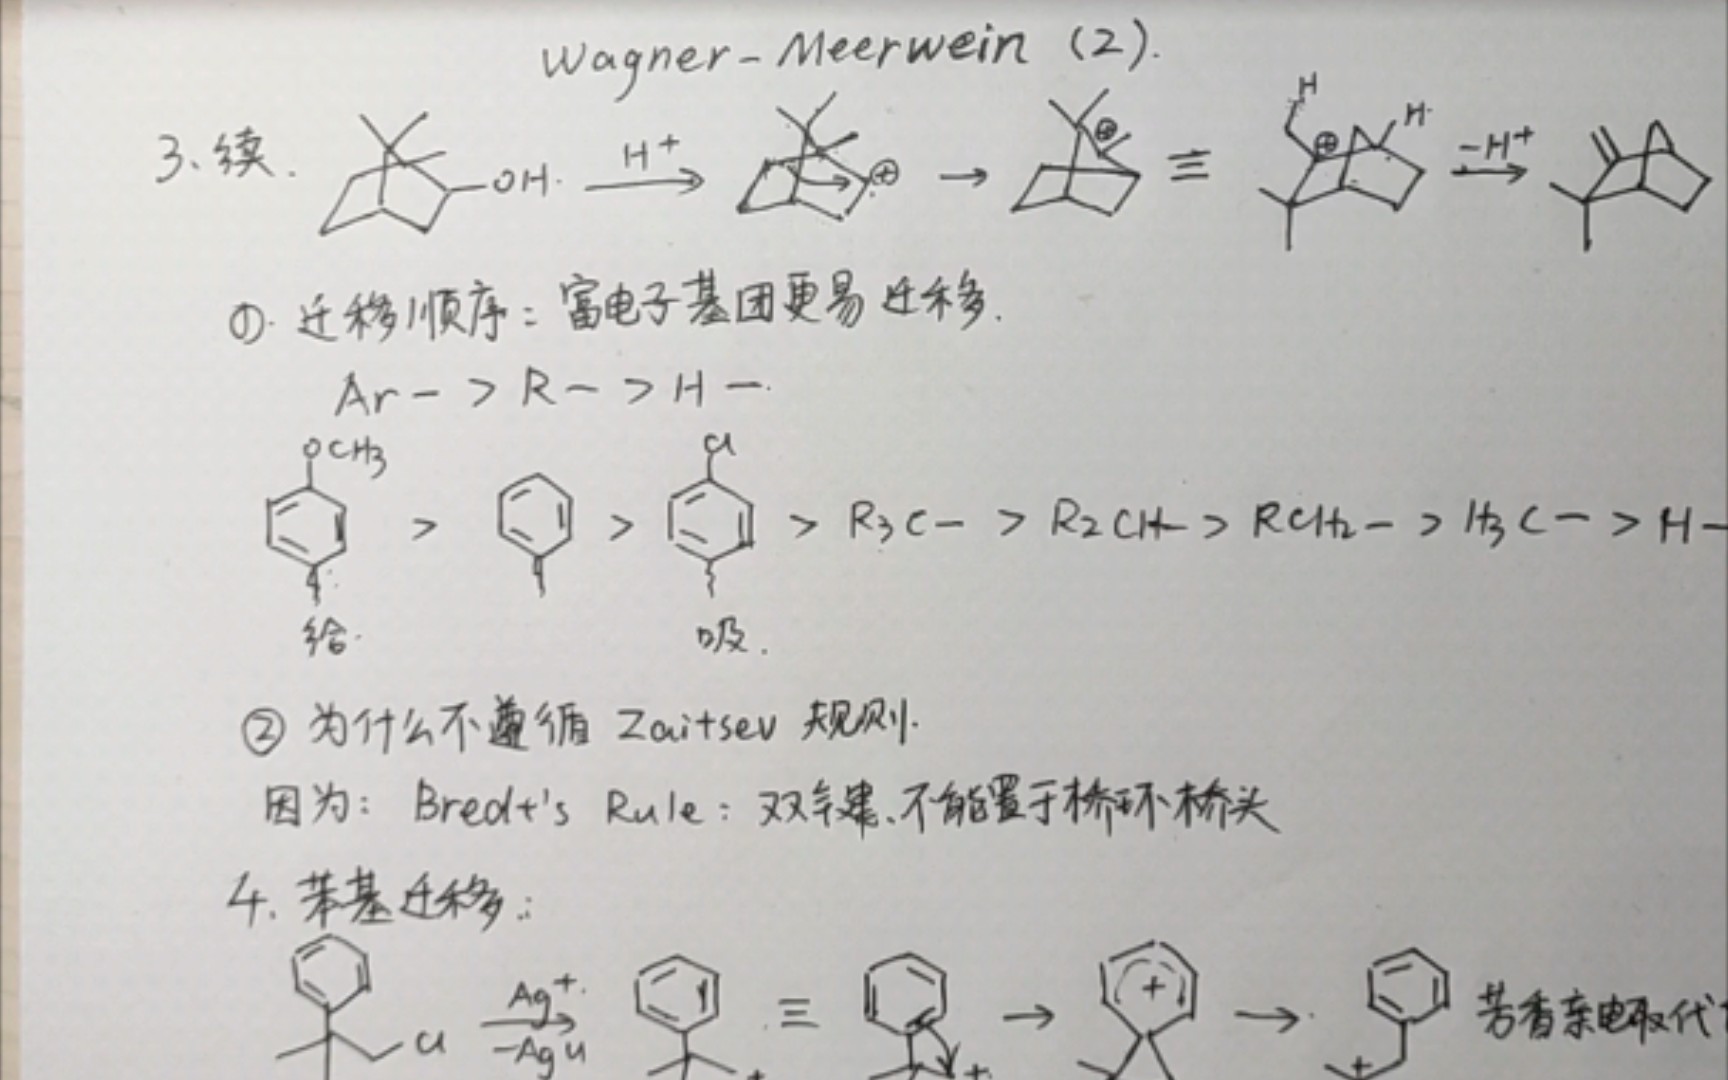 Wagner-Meerwein (2).
3、续. OH. H⁺ ⊕ ⊕ ≡ H ⊕ H -H⁺
①. 迁移顺序: 富电子基团更易迁移.
Ar- > R- > H-.
OCH3 Cl
> > > R3C- > R2CH- > RCH2- > H3C- > H-
给. 吸.
② 为什么不遵循 Zaitsev 规则.
因为: Bredt's Rule: 双键、不能置于桥环桥头
4. 苯基迁移:
Cl Ag⁺. -AgCl + ≡ + + + 芳香亲电取代